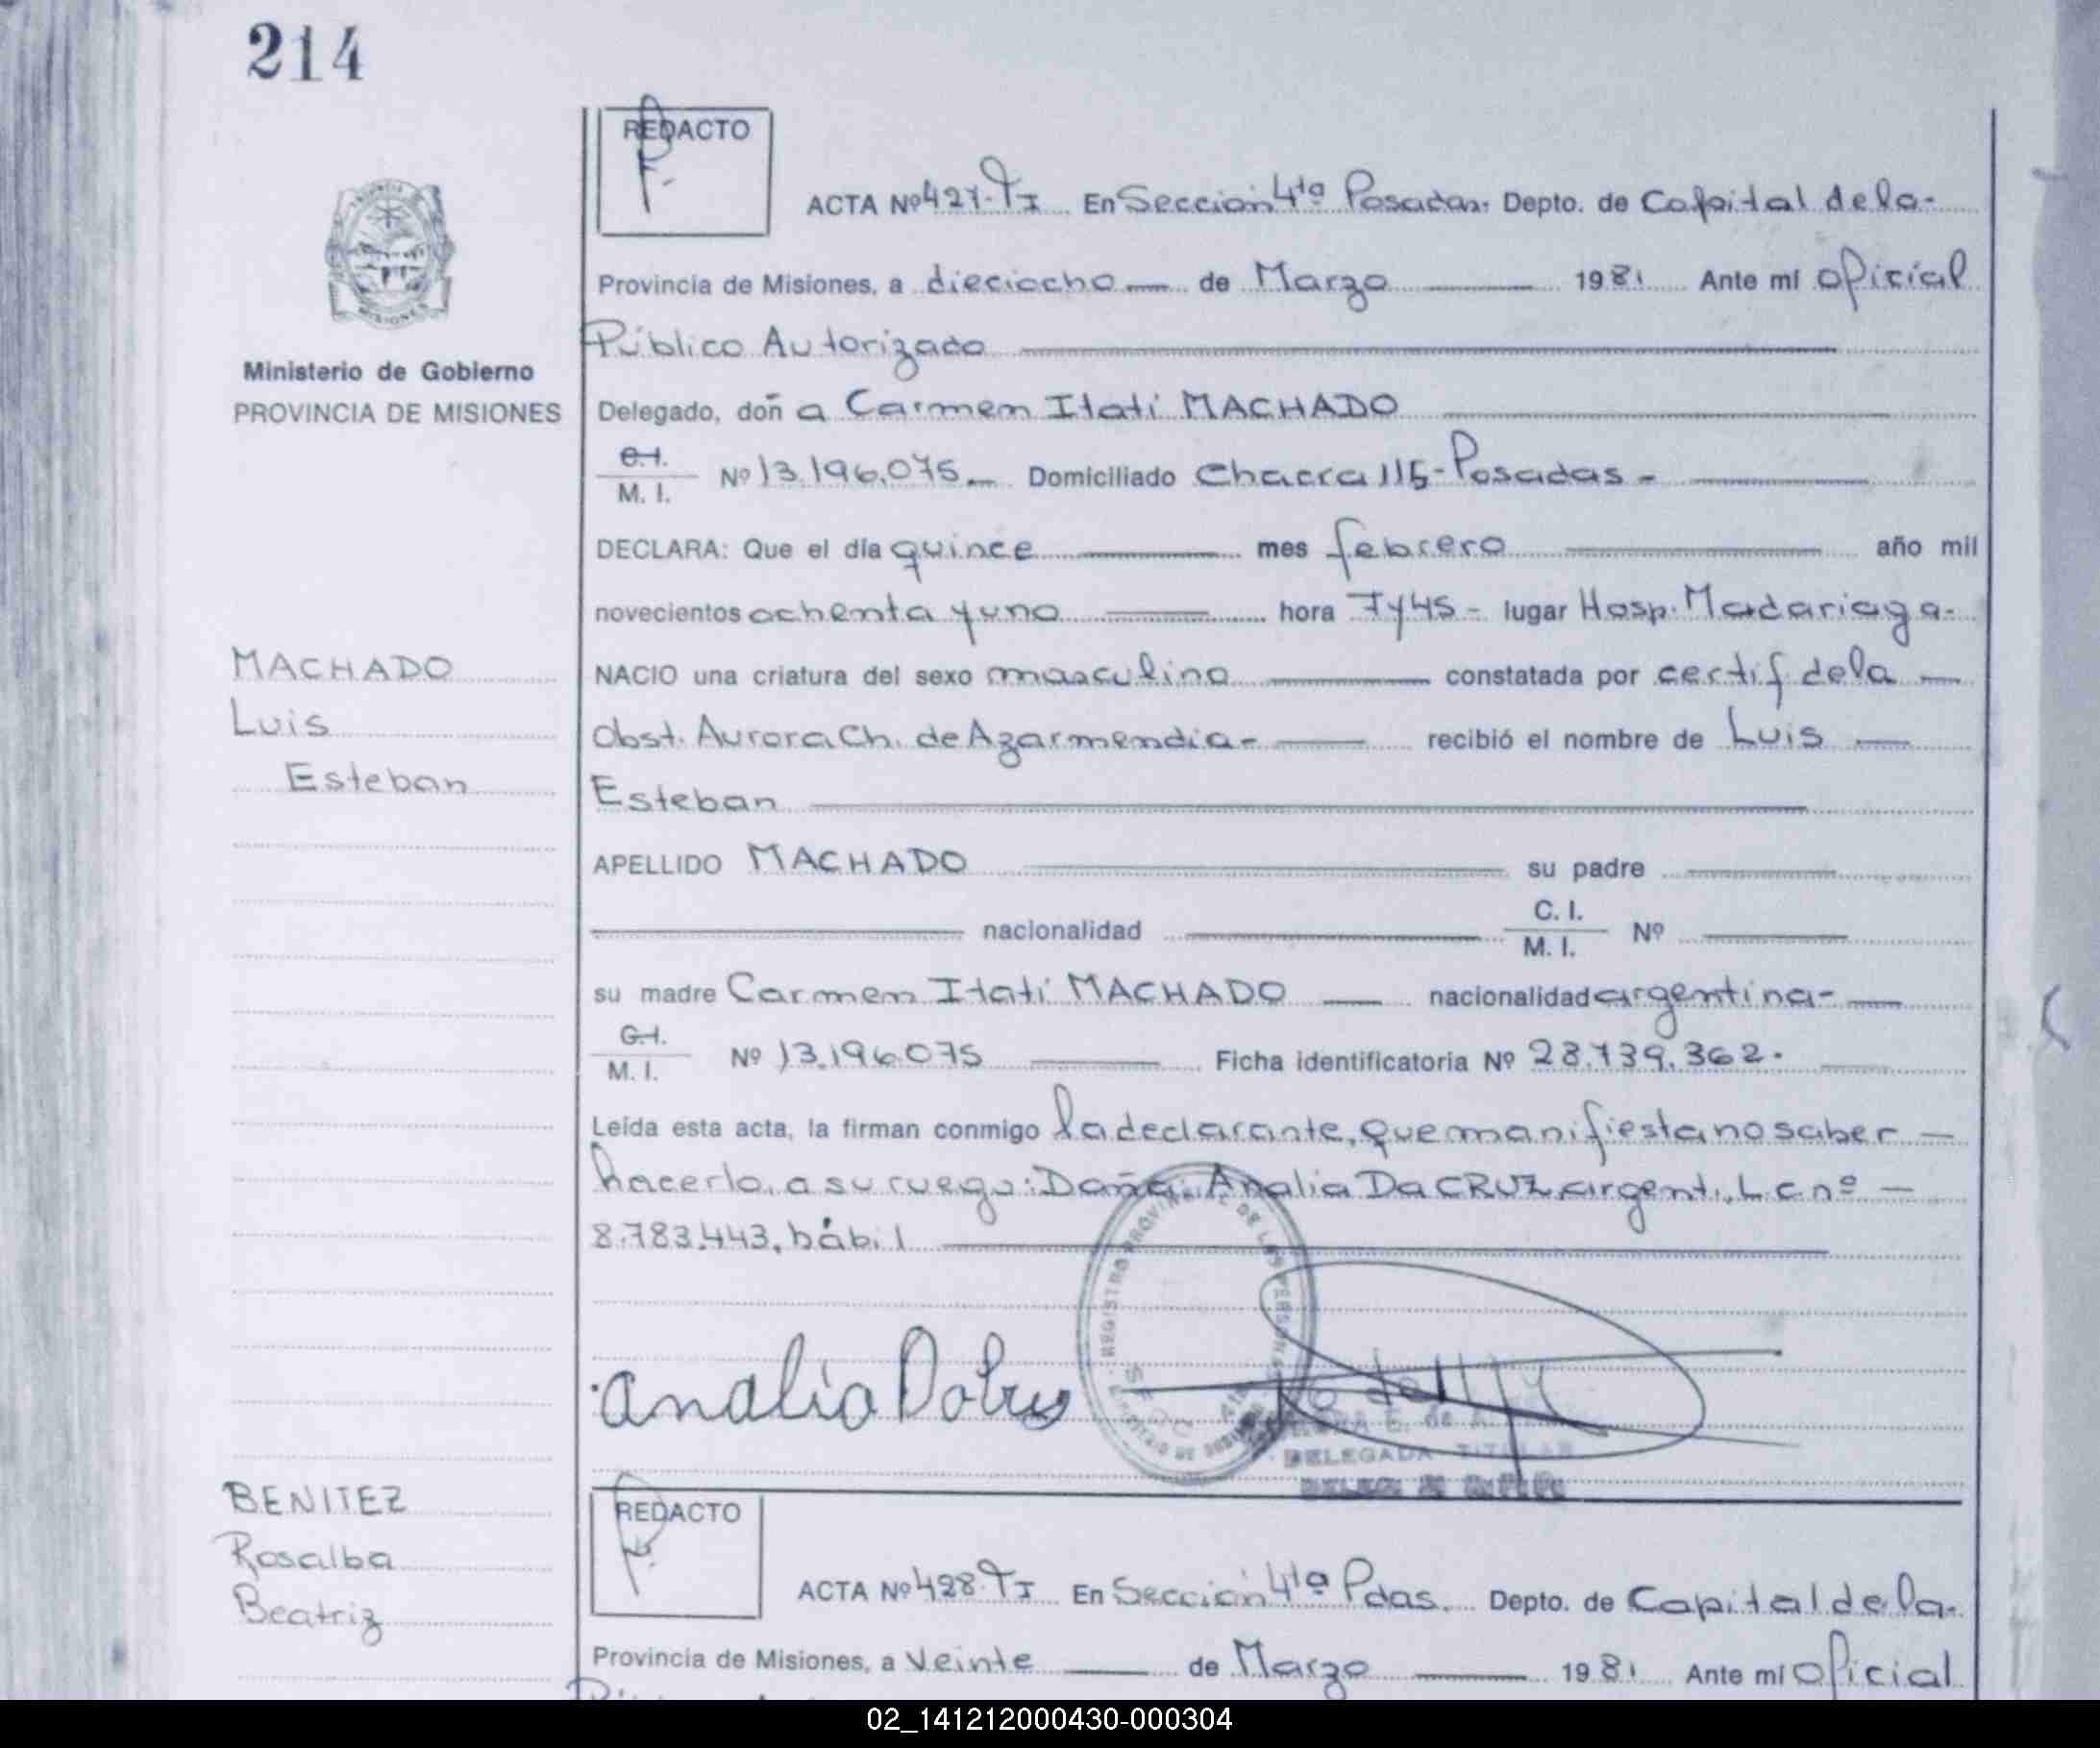 214
REDACTO
ACTA Nº 427-TI En Sección 4ta Posadas. Depto. de Capital de la-
Provincia de Misiones, a dieciocho de Marzo 1981 Ante mí oficial
Público Autorizado
Ministerio de Gobierno
PROVINCIA DE MISIONES
Delegado, doña Carmen Itatí MACHADO
C.I.
M. I. Nº 13.196.075 Domiciliado Chacra 115-Posadas-
DECLARA: Que el día quince mes febrero año mil
novecientos ochenta y uno hora 7 y 45- lugar Hosp. Madariaga-
MACHADO
Luis
Esteban
NACIO una criatura del sexo masculino constatada por certif de la
Obst. Aurora Ch. de Azarmendia- recibió el nombre de Luis
Esteban
APELLIDO MACHADO su padre
nacionalidad C. I.
M. I. Nº
su madre Carmen Itatí MACHADO nacionalidad argentina-
C.I.
M. I. Nº 13.196.075 Ficha identificatoria Nº 28.739.362.
Leída esta acta, la firman conmigo la declarante, que manifiesta no saber
hacerlo, a su ruego: Doña Analia Da CRUZ, argent., L c nº
8.783.443, hábil
REGISTRO PROVINC DE LAS PERSONAS
DELEGADA TITULAR
BENITEZ
Rosalba
Beatriz
REDACTO
ACTA Nº 428-TI En Sección 4ta Pdas. Depto. de Capital de la-
Provincia de Misiones, a Veinte de Marzo 1981 Ante mí Oficial
02_141212000430-000304